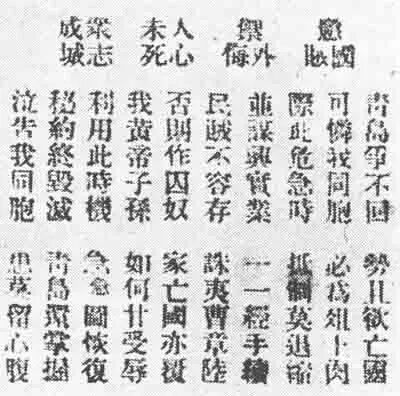 懲國賊
禦外侮
人心未死
眾志成城
青島爭不回
勢且欲亡國
可憐我同胞
必為俎上肉
際此危急時
抵制莫退縮
並謀興實業
一一經手續
民賊不容存
誅夷曹章陸
否則作囚奴
家亡國亦覆
我黃帝子孫
如何甘受辱
利用此時機
急急圖恢復
秘約終毀滅
青島還掌握
泣告我同胞
患莫留心腹